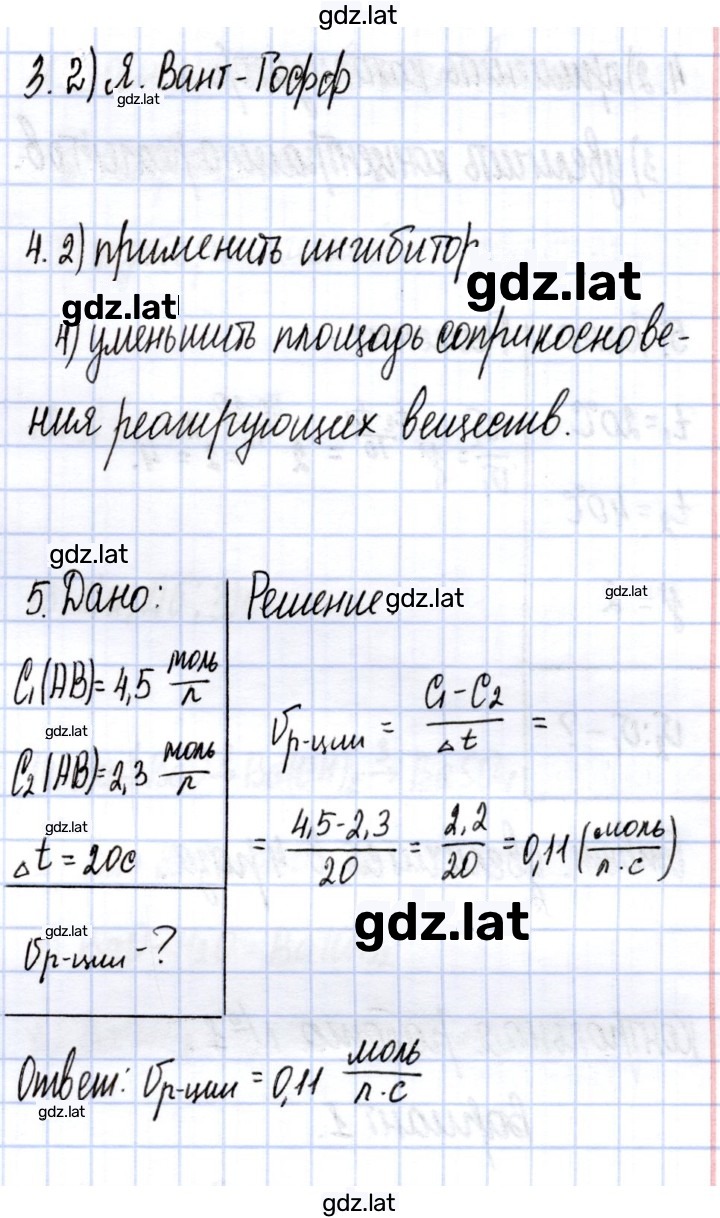 gdz.lat
3. 2) Я. Вант-Гофф
gdz.lat
4. 2) применить ингибитор
gdz.lat
gdz.lat
4) уменьшить площадь соприкоснове-
ния реагирующих веществ.
gdz.lat
5. Дано:
C₁(AB) = 4,5 моль/л
gdz.lat
C₂(AB) = 2,3 моль/л
gdz.lat
△t = 20с
gdz.lat
υр-ции - ?
Решение.
gdz.lat
gdz.lat
υр-ции = (C₁ - C₂)/△t =
= (4,5 - 2,3)/20 = 2,2/20 = 0,11 (моль/л·с)
gdz.lat
Ответ: υр-ции = 0,11 моль/л·с
gdz.lat
gdz.lat